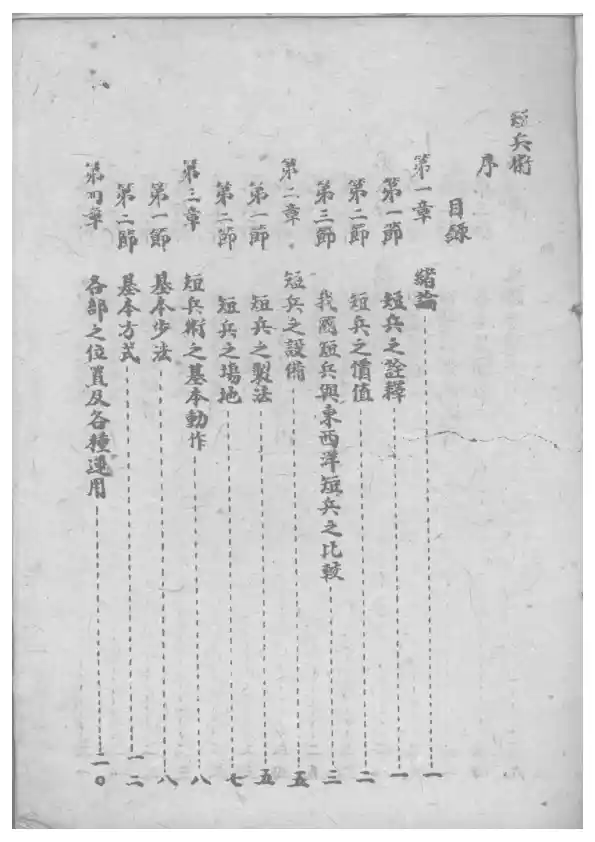 短兵術
序
目錄
第一章 緒論 一
第一節 短兵之詮釋 一
第二節 短兵之價值 二
第三節 我國短兵與東西洋短兵之比較 三
第二章 短兵之設備 五
第一節 短兵之製法 五
第二節 短兵之場地 七
第三章 短兵術之基本動作 八
第一節 基本步法 八
第二節 基本方式 一二
第四章 各部之位置及各種運用 二〇